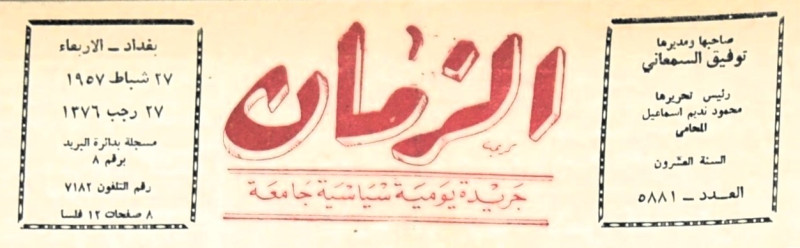 صاحبها ومديرها
توفيق السمعاني
رئيس تحريرها
محمود نديم اسماعيل
المحامي
السنة العشرون
العـدد ـ ٥٨٨١
الزمان
جريدة يومية سياسية جامعة
بغداد ـ الاربعاء
٢٧ شباط ١٩٥٧
٢٧ رجب ١٣٧٦
مسجلة بدائرة البريد
برقم ٨
رقم التلفون ٧١٨٢
٨ صفحات ١٢ فلسا